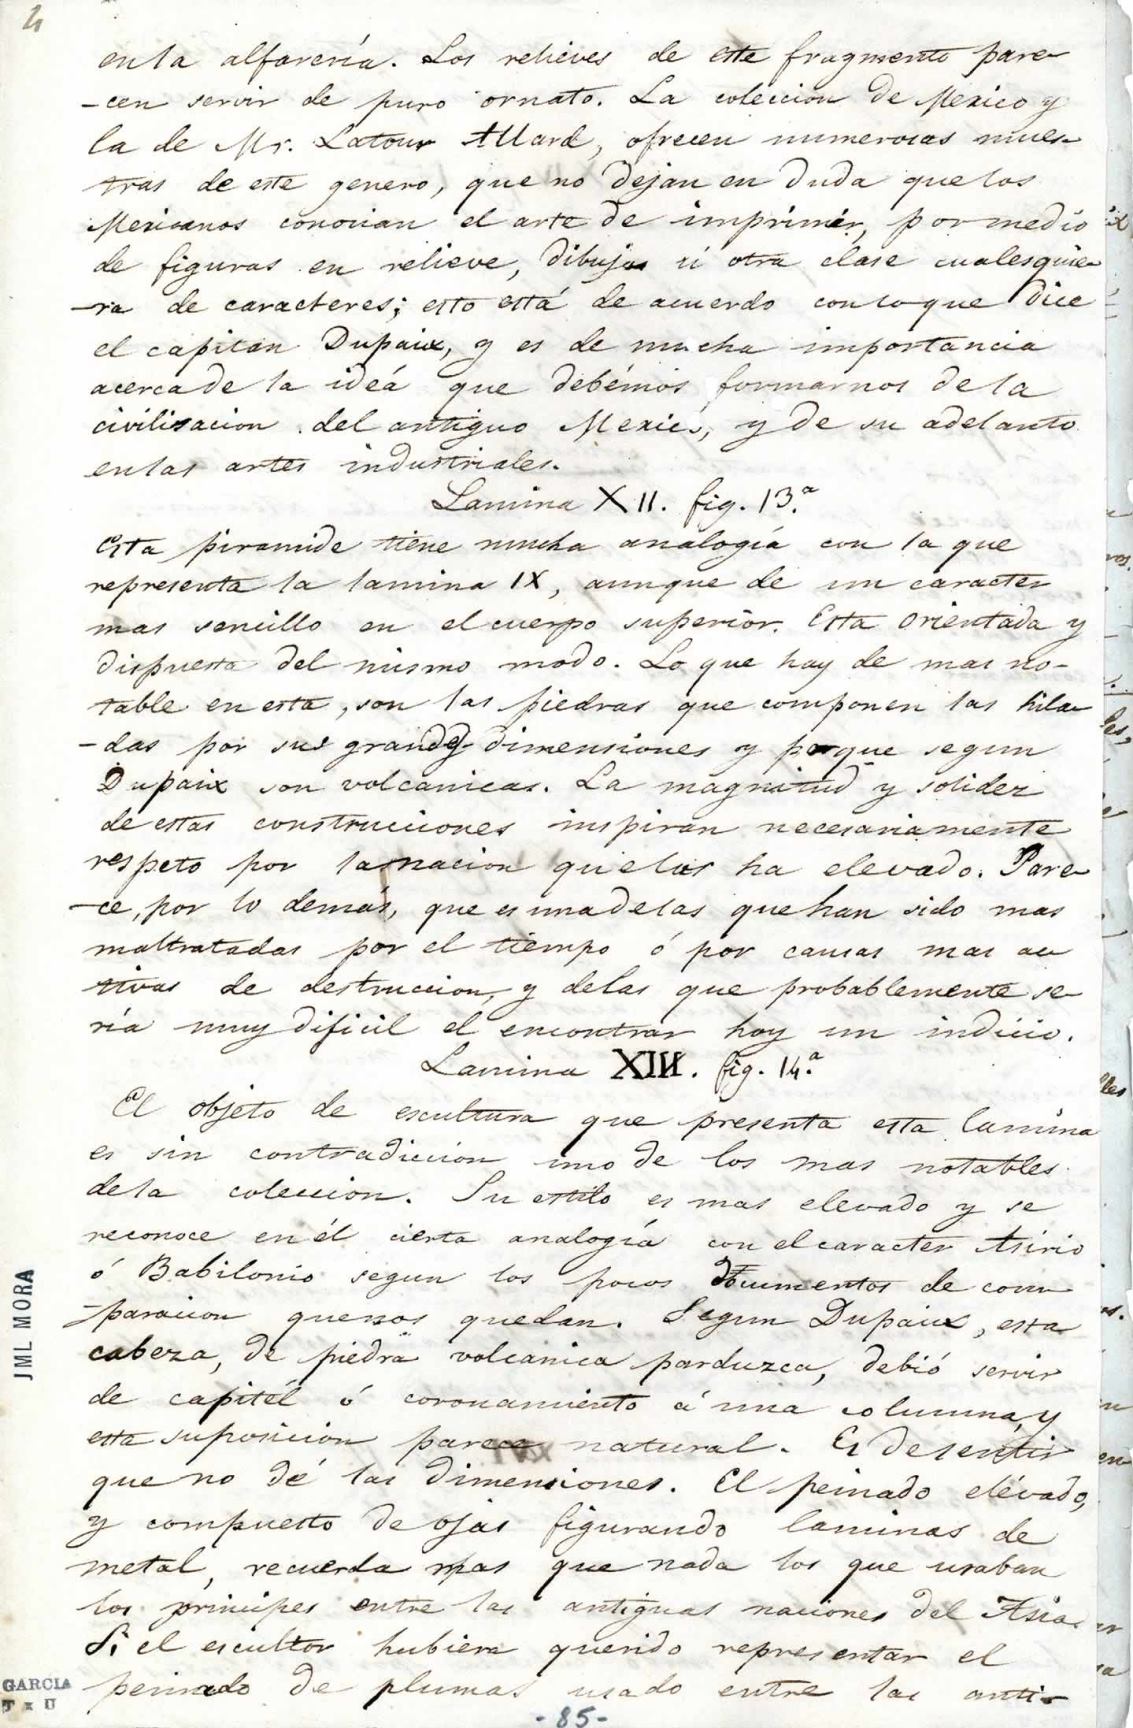 4
en la alfarería. Los relieves de este fragmento pare-
-cen servir de puro ornato. La coleccion de Mexico y
la de Mr. Latour Allard, ofrecen numerosas mues-
tras de este genero, que no dejan en duda que los
Mexicanos conocian el arte de imprimir, por medio
de figuras en relieve, dibujos ú otra clase cualesquie-
-ra de caracteres; esto está de acuerdo con lo que dice
el capitan Dupaix, y es de mucha importancia
acerca de la ideá que debémos formarnos de la
civilisacion del antiguo Mexico, y de su adelanto
en las artes industriales.
Lamina XII. fig. 13.ª
Esta piramide tiene mucha analogía con la que
representa la lamina IX, aunque de un caracter
mas sencillo en el cuerpo superior. Esta orientada y
dispuesta del mismo modo. Lo que hay de mas no-
table en esta, son las piedras que componen las hila-
-das por sus grandes dimensiones y porque segun
Dupaix son volcanicas. La magnitud y solidez
de estas construcciones inspiran necesariamente
respeto por la nacion que las ha elevado. Pare-
-ce, por lo demás, que es una de las que han sido mas
maltratadas por el tiempo ó por causas mas ac
tivas de destruccion, y de las que probablemente se-
ría muy dificil el encontrar hoy un indicio.
Lamina XIII. fig. 14.ª
El objeto de escultura que presenta esta lamina
es sin contradiccion uno de los mas notables
de la coleccion. Su estilo es mas elevado y se
reconoce en él cierta analogía con el caracter Asirio
ó Babilonio segun los pocos documentos de com
-paracion que nos quedan. Segun Dupaix, esta
cabeza, de piedra volcanica parduzca, debió servir
de capitél ó coronamiento á una columna, y
esta suposicion parece natural. Es de sentir
que no dé las dimensiones. El peinado elévado,
y compuesto de ojas figurando laminas de
metal, recuerda mas que nada los que usaban
los principes entre las antiguas naciones del Asia.
Si el escultor hubiera querido representar el
peinado de plumas usado entre las anti-
-85-
JML MORA
GARCIA